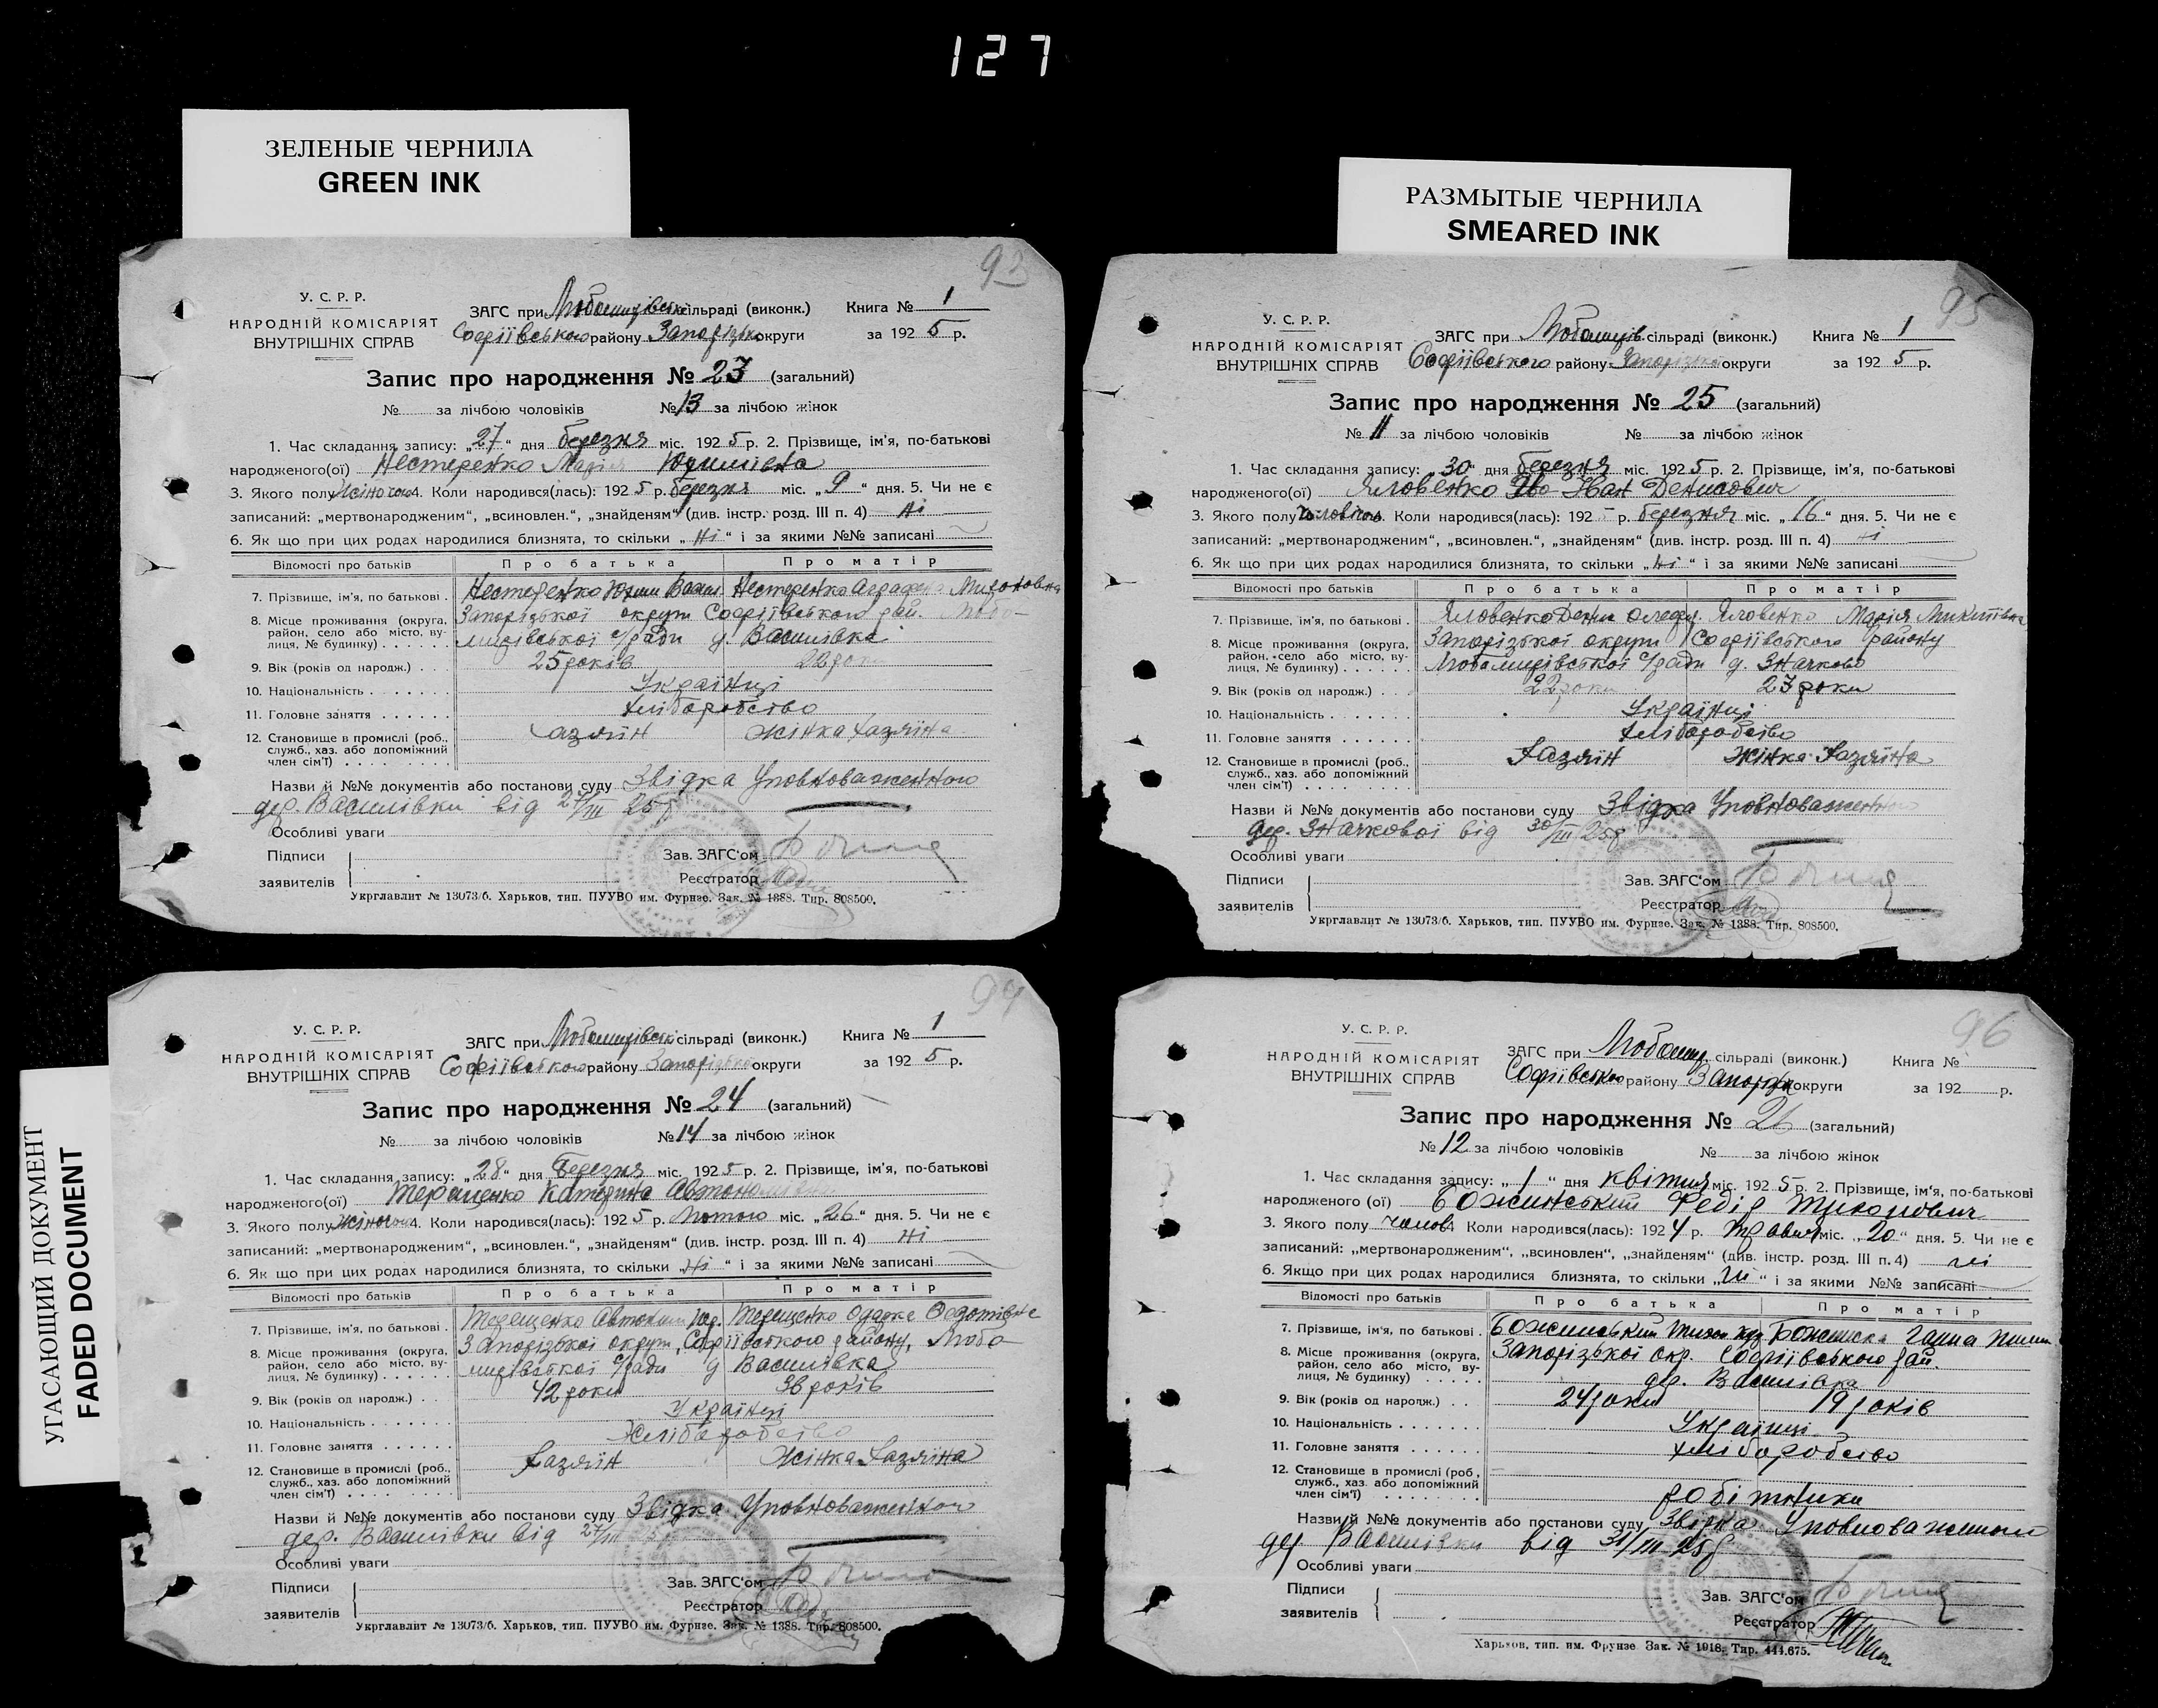 127
ЗЕЛЕНЫЕ ЧЕРНИЛА
GREEN INK
93
У. С. Р. Р.
НАРОДНІЙ КОМІСАРІЯТ
ВНУТРІШНІХ СПРАВ
ЗАГС при сільраді (виконк.) Книга № 1
Софіївського району округи за 192 5 р.
Запис про народження № 23 (загальний)
№ за лічбою чоловіків № 13 за лічбою жінок
1. Час складання запису: „ 27 “ дня березня міс. 192 5 р. 2. Прізвище, ім'я, по-батькові
народженого(ої) Нестеренко Марія Юхимівна
3. Якого полу 4. Коли народився(лась): 192 5 р. березня міс. „ 9 “ дня. 5. Чи не є
записаний: „мертвонародженим“, „всиновлен.“, „знайденям“ (див. інстр. розд. III п. 4) ні
6. Як що при цих родах народилися близнята, то скільки „ ні “ і за якими №№ записані
Відомості про батьків Про батька Про матір
7. Прізвище, ім'я, по батькові . Нестеренко Юхим Нестеренко
8. Місце проживання (округа, Запорізької округи Софіївського рай.
район, село або місто, ву-
лиця, № будинку) с/ради д. Василівка
9. Вік (років од народж.) 25 років 22 роки
10. Національність Українці
11. Головне заняття хліборобство
12. Становище в промислі (роб., хазяїн жінка хазяїна
служб., хаз. або допоміжний
член сім'ї)
Назви й №№ документів або постанови суду Звідка Уповноваженного
дер. Василівки від 27/III 25 р
Особливі уваги
Підписи Зав. ЗАГС'ом
заявителів Реєстратор
Укрглавлит № 13073/б. Харьков, тип. ПУУВО им. Фурнзе. Зак. № 1388. Тир. 808500.
РАЗМЫТЫЕ ЧЕРНИЛА
SMEARED INK
95
У. С. Р. Р.
НАРОДНІЙ КОМІСАРІЯТ
ВНУТРІШНІХ СПРАВ
ЗАГС при сільраді (виконк.) Книга № 1
Софіївського району округи за 192 5 р.
Запис про народження № 25 (загальний)
№ 11 за лічбою чоловіків № за лічбою жінок
1. Час складання запису: „ 30 “ дня березня міс. 192 5 р. 2. Прізвище, ім'я, по-батькові
народженого(ої) Яловенко Іван Денисович
3. Якого полу Коли народився(лась): 192 5 р. березня міс. „ 16 “ дня. 5. Чи не є
записаний: „мертвонародженим“, „всиновлен.“, „знайденям“ (див. інстр. розд. III п. 4) ні
6. Як що при цих родах народилися близнята, то скільки „ ні “ і за якими №№ записані
Відомості про батьків Про батька Про матір
7. Прізвище, ім'я, по батькові . Яловенко Яловенко Марія Микитівна
8. Місце проживання (округа, Запорізької округи Софіївського району
район, село або місто, ву-
лиця, № будинку) с/ради д. Значково
9. Вік (років од народж.) 22 роки 23 роки
10. Національність Українці
11. Головне заняття хліборобство
12. Становище в промислі (роб., Хазяїн жінка хазяїна
служб., хаз. або допоміжний
член сім'ї)
Назви й №№ документів або постанови суду Звідка Уповноваженного
дер. Значкової від 30/III 25 р
Особливі уваги
Підписи Зав. ЗАГС'ом
заявителів Реєстратор
Укрглавлит № 13073/б. Харьков, тип. ПУУВО им. Фурнзе. Зак. № 1388. Тир. 808500.
УГАСАЮЩИЙ ДОКУМЕНТ
FADED DOCUMENT
94
У. С. Р. Р.
НАРОДНІЙ КОМІСАРІЯТ
ВНУТРІШНІХ СПРАВ
ЗАГС при сільраді (виконк.) Книга № 1
Софіївського району округи за 192 5 р.
Запис про народження № 24 (загальний)
№ за лічбою чоловіків № 14 за лічбою жінок
1. Час складання запису: „ 28 “ дня березня міс. 192 5 р. 2. Прізвище, ім'я, по-батькові
народженого(ої) Терещенко Катерина
3. Якого полу 4. Коли народився(лась): 192 5 р. Лютого міс. „ 26 “ дня. 5. Чи не є
записаний: „мертвонародженим“, „всиновлен.“, „знайденям“ (див. інстр. розд. III п. 4) ні
6. Як що при цих родах народилися близнята, то скільки „ ні “ і за якими №№ записані
Відомості про батьків Про батька Про матір
7. Прізвище, ім'я, по батькові . Терещенко Терещенко
8. Місце проживання (округа, Запорізької округи, Софіївського району,
район, село або місто, ву-
лиця, № будинку) с/ради д Василівка
9. Вік (років од народж.) 42 роки 38 років
10. Національність Українці
11. Головне заняття Хліборобство
12. Становище в промислі (роб., хазяїн Жінка хазяїна
служб., хаз. або допоміжний
член сім'ї)
Назви й №№ документів або постанови суду Звідка Уповноваженного
дер. Василівки від 27/III 25
Особливі уваги
Підписи Зав. ЗАГС'ом
заявителів Реєстратор
Укрглавлит № 13073/б. Харьков, тип. ПУУВО им. Фурнзе. Зак. № 1388. Тир. 808500.
96
У. С. Р. Р.
НАРОДНІЙ КОМІСАРІЯТ
ВНУТРІШНІХ СПРАВ
ЗАГС при сільраді (виконк.) Книга №
Софіївського району округи за 192 р.
Запис про народження № 26 (загальний)
№ 12 за лічбою чоловіків № за лічбою жінок
1. Час складання запису: „ 1 “ дня квітня міс. 192 5 р. 2. Прізвище, ім'я, по-батькові
народженого (ої) Божинський Федір Тихонович
3. Якого полу чолов. Коли народився(лась): 192 4 р. травня міс. „ 20 “ дня. 5. Чи не є
записаний: „мертвонародженим“, „всиновлен“, „знайденям“ (див. інстр. розд. III п. 4) ні
6. Якщо при цих родах народилися близнята, то скільки „ ні “ і за якими №№ записані
Відомості про батьків Про батька Про матір
7. Прізвище, ім'я, по батькові . Божинський Тихон Ганна
8. Місце проживання (округа, Запорізької окр. Софіївського рай.
район, село або місто, ву-
лиця, № будинку) дер. Василівка
9. Вік (років од народж.) 24 роки 19 років
10. Національність Українці
11. Головне заняття хліборобство
12. Становище в промислі (роб,
служб., хаз. або допоміжний
член сім'ї) робітники
Назви й №№ документів або постанови суду Звідка Уповноваженного
дер Василівки від 31/III 25 р
Особливі уваги
Підписи Зав. ЗАГС'ом
заявителів Реєстратор
Харьков, тип. им. Фрунзе Зак. № 1918. Тир. 444.675.